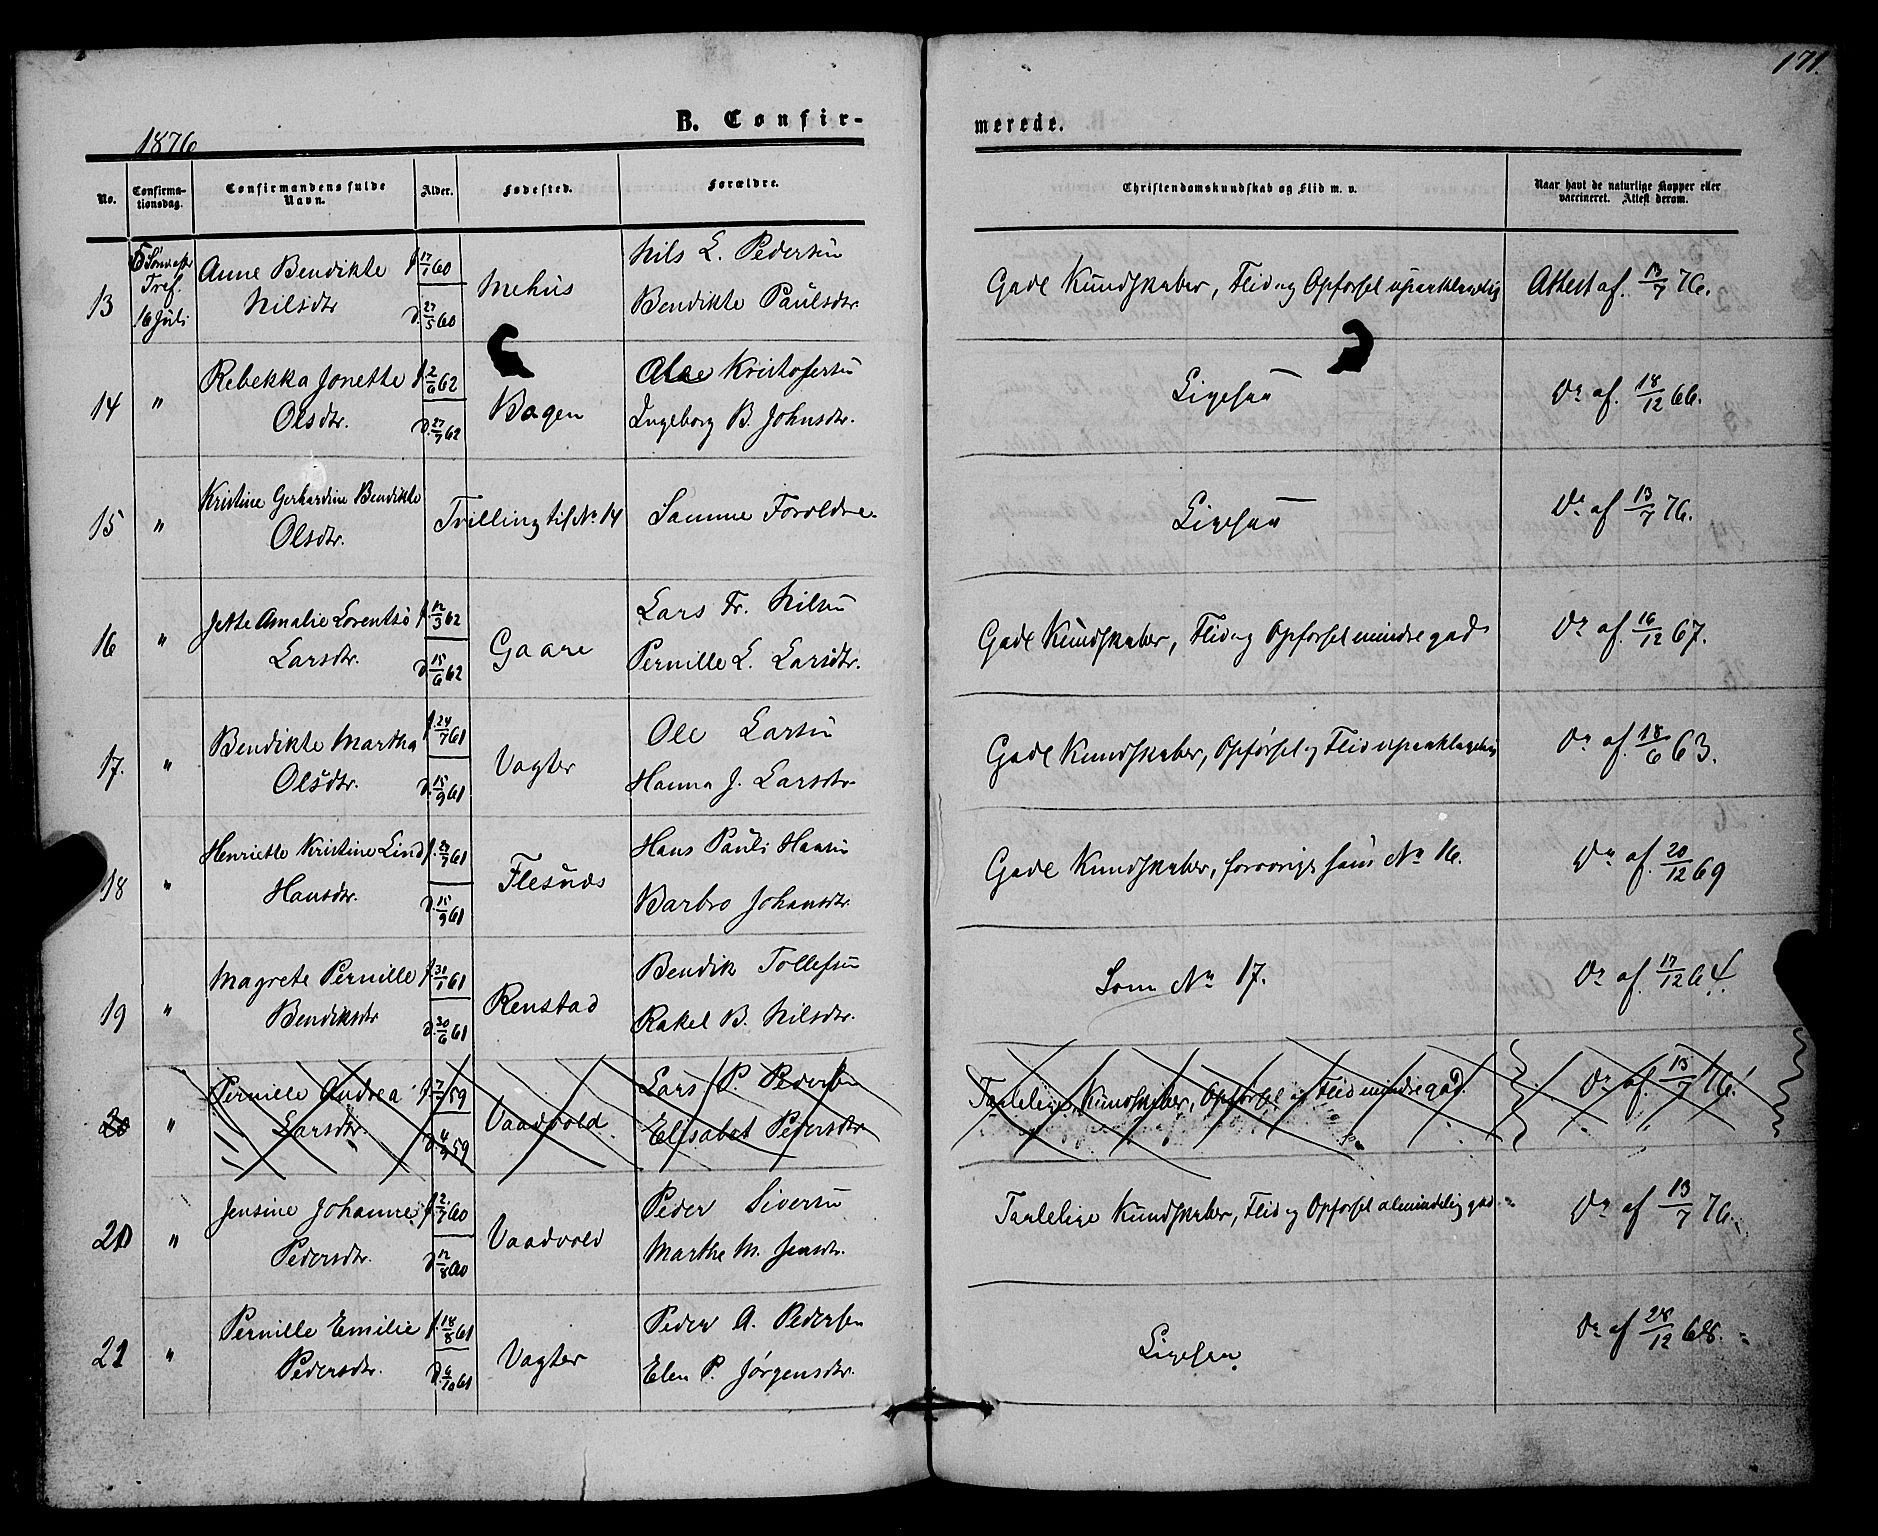 171.
1876
B. Confir-
merede.
No.
Confirma-
tionsdag.
Confirmandens fulde
Navn.
Alder.
Fødested.
Forældre.
Christendomskundskab og Flid m. v.
Naar havt de naturlige Kopper eller
vaccineret. Attest derom.
13
5 Sønd eft
Tref.
16 Juli
Anne Bendikte
Nilsdtr
f 17/1 60
d. 27/5 60
Mehus
Nils L. Pedersen
Bendikte Paulsdtr.
Gode Kundskaber, Flid og Opførsel upaaklagelig
Attest af. 13/7 76.
14
"
Rebekka Jonette
Olsdtr.
f 2/6 62
d. 27/7 62
Bogen
Ole Kristofersen
Ingeborg B. Johnsdtr.
Ligesaa
Do af. 18/12 66.
15
"
Kristine Gerhardine Bendikte
Olsdtr.
Tvilling til No 14
Samme Foroldre.
Ligesaa
Do af 13/7 76.
16
"
Jette Amalie Lorentse
Larsdtr.
f 12/3 62
d 15/6 62
Gaare
Lars Fr. Nilsen
Pernille L. Larsdtr.
Gode Kundskaber, Flid og Opførsel mindre god
Do af. 16/12 67.
17.
"
Bendikte Martha
Olsdtr.
f. 24/7 61
d. 15/9 61
Vagter
Ole Larsen
Hanna J. Larsdtr.
Gode Kundskaber, Opførsel og Flid upaaklagelig
Do af. 18/6 63.
18
"
Henriette Kristine Lind
Hansdtr.
61
d. 15/9 61
Flesnes
Hans Pauli Hansen
Barbro Johansdtr.
Gode Kundskaber, forøvrigt som No 16.
Do af. 20/12 69
19
"
Magrete Pernille
Bendiksdtr
f 31/1 61
d. 30/6 61
Renstad
Bendik Tollefsen
Rakel B. Nilsdtr.
Som No 17.
Do af. 17/12 64.
20
"
Pernille Andrea
Larsdtr.
59
59
Vaadvold
Lars P. Pedersen
Elisabet Pedersdtr
Taalelige Kundskaber, Opførsel og Flid mindre god.
Do af. 13/7 76.
20
"
Jensine Johanne
Pedersdtr.
f 2/7 60
d 12/8 60
Vaadvold
Peder Siversen
Marthe M. Jensdtr.
Taalelige Kundskaber, Flid og Opførsel almindelig god.
Do af 13/7 76.
21
"
Pernille Emilie
Pedersdtr.
f. 18/8 61
d. 6/10 61
Vagter
Peder A. Pedersen
Elen P. Jørgensdtr.
Ligesaa
Do af 28/12 68.